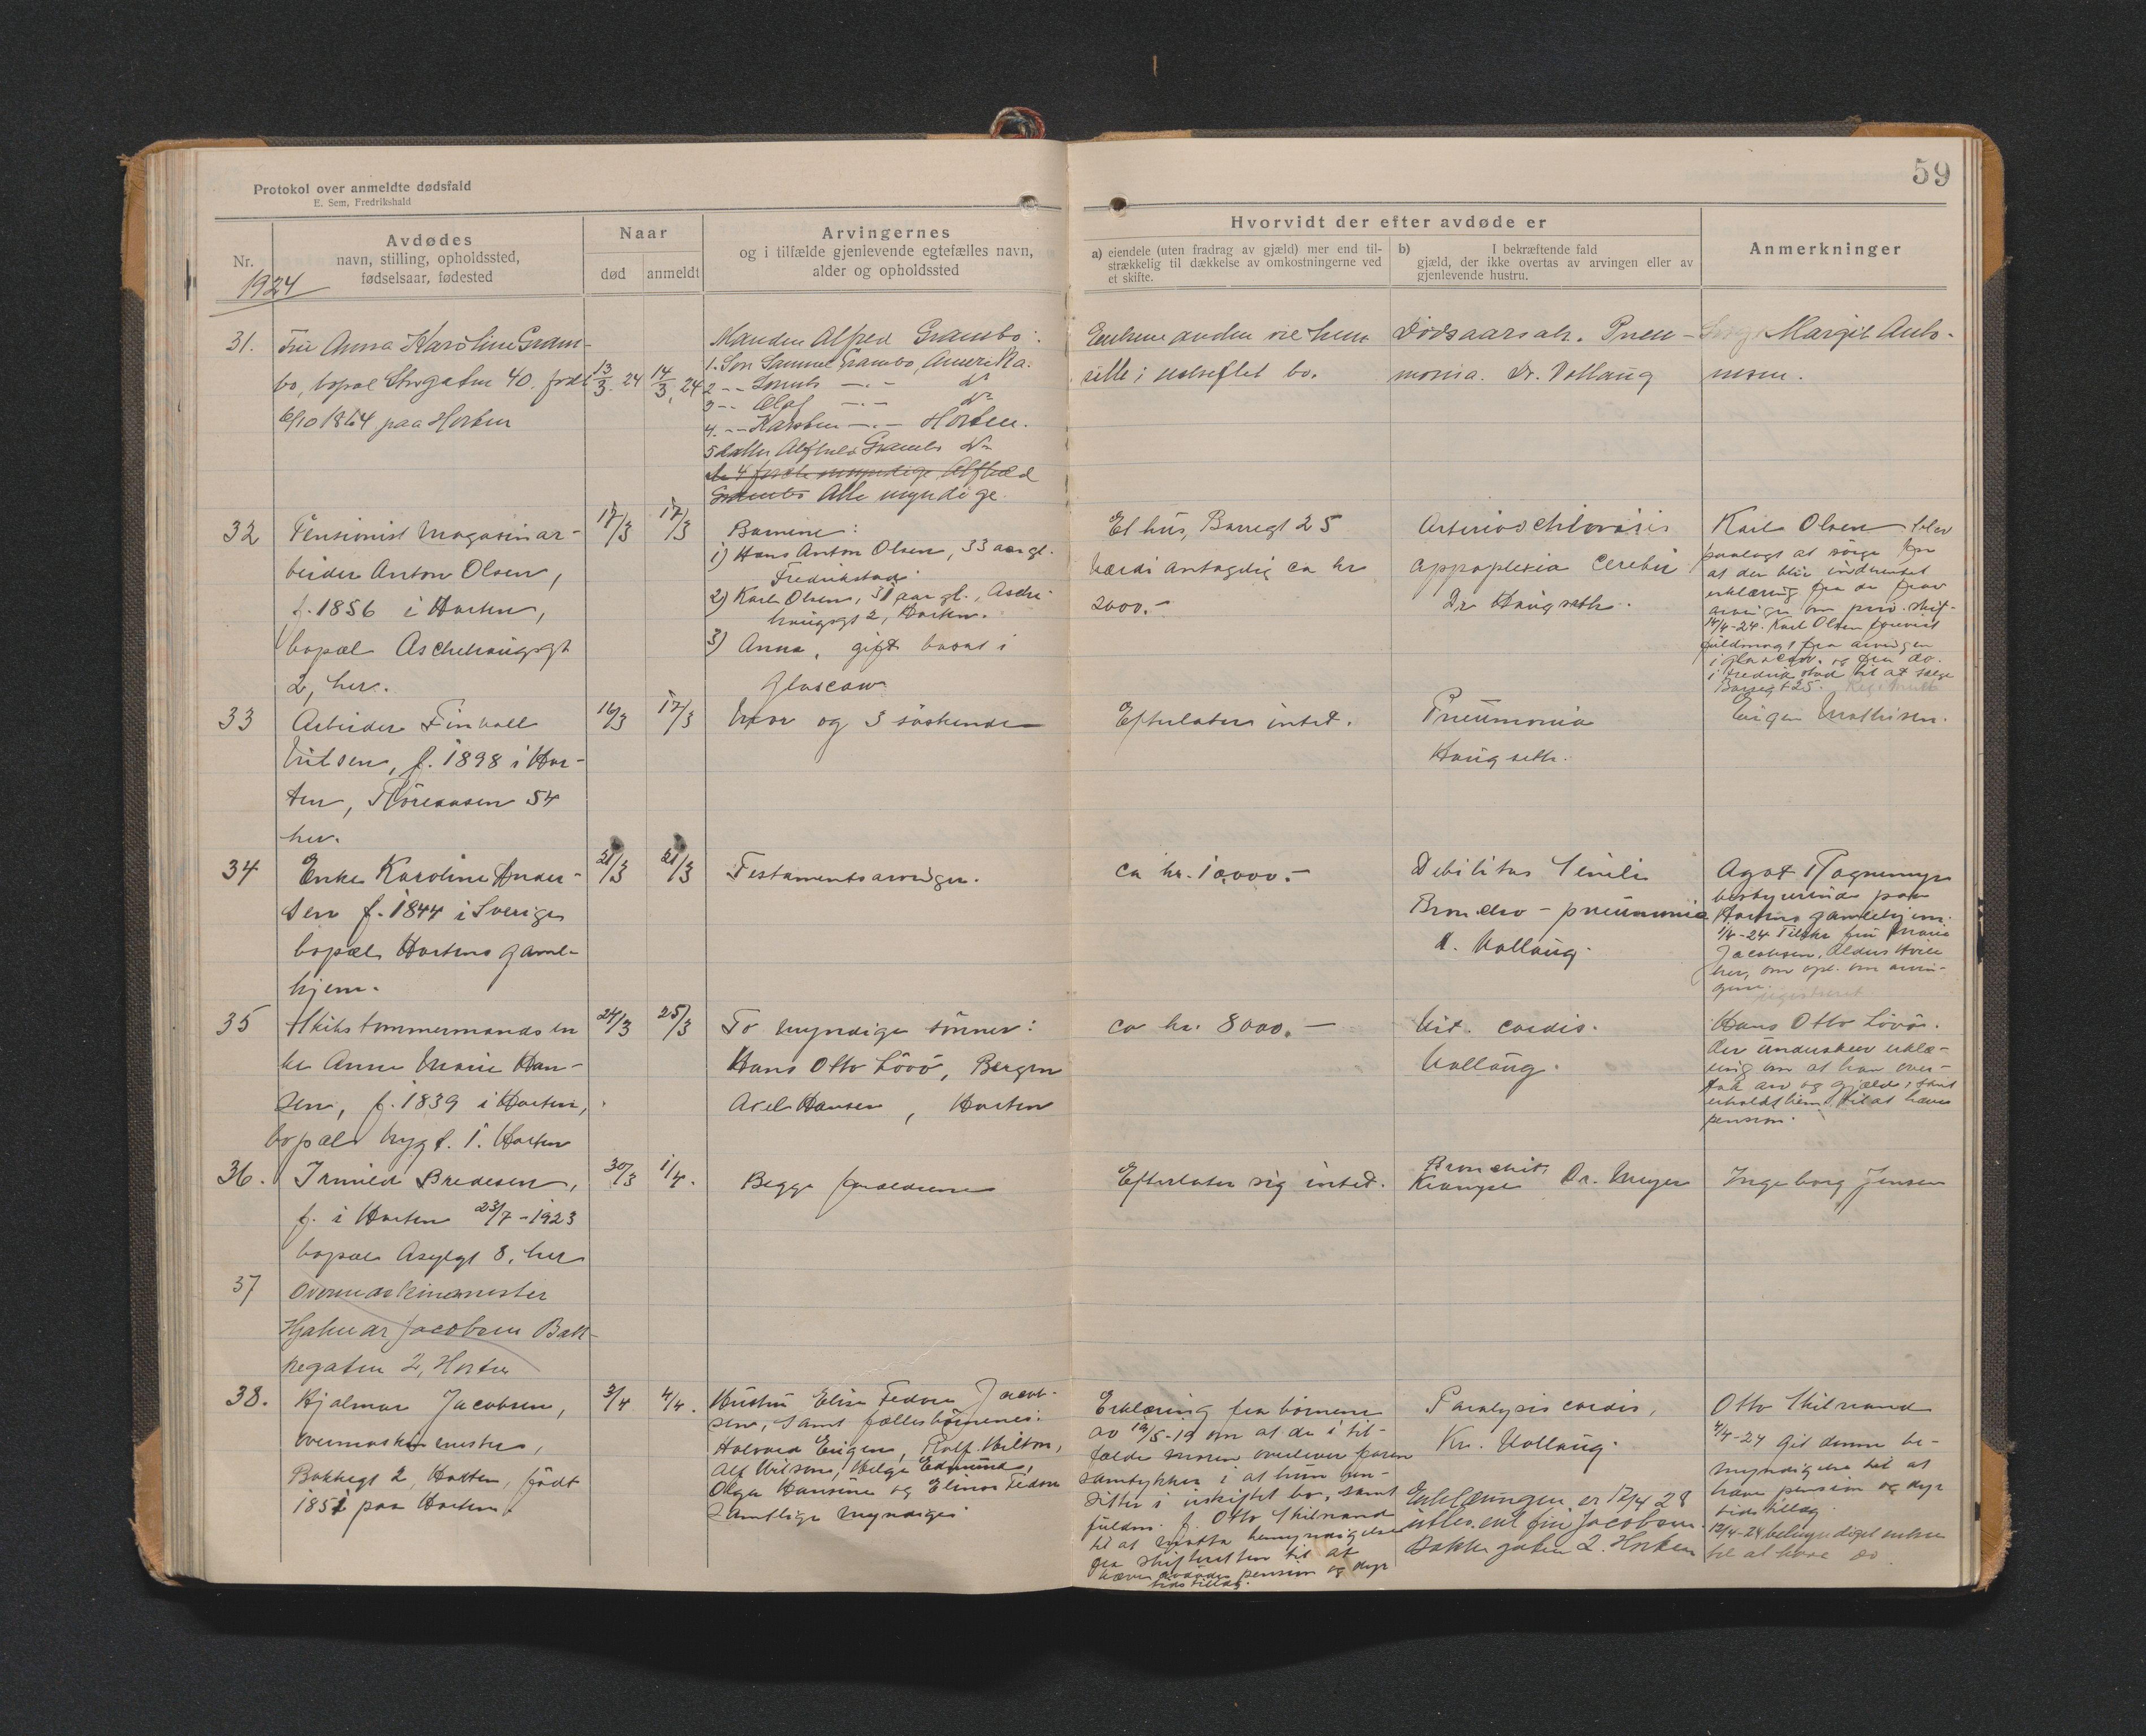 59
Protokol over anmeldte dødsfald
E. Sem, Fredrikshald
Nr.
Avdødes
navn, stilling, opholdssted,
fødselsaar, fødested
Naar
død
anmeldt
Arvingernes
og i tilfælde gjenlevende egtefælles navn,
alder og opholdssted
Hvorvidt der efter avdøde er
a) eiendele (uten fradrag av gjæld) mer end til-
strækkelig til dækkelse av omkostningerne ved
et skifte.
b) I bekræftende fald
gjæld, der ikke overtas av arvingen eller av
gjenlevende hustru.
Anmerkninger
1924
31.
Fru Anna Karoline Gram-
bo, bopæl Storgaten 40. født
6/10 1864 paa Horten
13/3. 24
14/3. 24
Manden Alfred Grambo.
1. Søn Samuel Grambo, Amerika.
2 -- -.- do
3 -- Olaf -.- do
4. -- Karsten -.- Horten.
5 datter Grambo do
Grambo Alle myndige.
Enkemanden vil hen
sitte i uskiftet bo.
Dødsaarsak. Pneu-
monia. Dr. Vollaug
Margit Anto-
nsen.
32
Pensionist Magasinar-
beider Anton Olsen,
f. 1856 i Horten,
bopæl Aschehougsgt
2, her.
17/3
17/3
Barnene:
1) Hans Anton Olsen, 33 aar gl.
Fredrikstad
2) Karl Olsen, 31 aar gl., Asche-
hougsgt 2, Horten.
3) Anna, gift bosat i
Glascow
Et hus, Barregt 25
Værdi antagelig ca kr
2000.-
Arterioschlerosis
Appoplexia Cerebri
Dr Haugseth.
Karl Olsen blev
paalagt at sørge for
at der blir indhentet
erklæring fra de
arvinger om priv. skif-
14/4-24. Karl Olsen forevist
fuldmagt fra arvingen
i Glascow, og fra do.
i Fredrikstad til at sælge
Barregt 25.
33
Arbeider Finvall
Nilsen, f. 1898 i Hor-
ten, 54
her.
16/3
17/3
Mor og 3 søskende
Efterlater intet.
Pneumonia
Haugseth.
Eugen Mathisen.
34
Enke Karoline Ander-
sen f. 1844 i Sverige
bopæl Hortens gamle-
hjem.
21/3
21/3
Testamentsarvinger.
ca kr. 10,000.-
Debilitas Senilis
Broncho-pneumonia
K. Vollaug.
Agot
bestyrerinde paa
Hortens gamlehjem.
1/4-24 Tilskr. fru Marie
Jacobsen, Aldershvile
her, om opl. om arvin-
gene.
registreret
35
Skibstømmermandsen
ke Anne Marie Han-
sen, f. 1839 i Horten,
bopæl Nygt. 1. Horten
24/3
25/3
To myndige sønner:
Hans Otto Lövö, Bergen
Axel Hansen, Horten
ca kr. 8000.-
Vit. cordis.
Vollaug.
Hans Otto Lövö.
der underskrev erklæ-
ring om at han over-
tok arv og gjæld, samt
erholdt hjem. til at hæve
pension.
36.
Irmild Bredesen,
f. i Horten 23/7-1923
bopæl Asylgt 8, her
30/3
1/4.
Begge forældrene
Efterlater sig intet.
Bronchit.
Krampe Dr. Meyer
Ingeborg Jensen
37
Overmaskinmester
Hjalmar Jacobsen Bak-
kegaten 2, Horten
38.
Hjalmar Jacobsen,
overmaskinmester,
Bakkegt 2, Horten, født
1851 paa Horten.
3/4
4/4.
Hustru Elise Fedora Jacob-
sen, samt fællesbørnene:
Halvard Eugen, Rolf Milton,
Alf Nilson, Helge Edmund,
Olga Hansine og Elinor Fedora
samtlige myndige
Erklæring fra børnene
av 12/5-19 om at de i til-
fælde moren overlever faren
samtykker i at hun hen-
sitter i uskiftet bo, samt
fuldm. f. Otto Skilnand
til at motta bemyndigelse
fra skifteretten til at
hæve avdødes pension og dyr
tidstillæg.
Paralysis cordis,
Kr. Vollaug.
Erklæringen er 12/4 28
utlev. til fru Jacobsen
Bakkegaten 2. Horten
Otto Skilnand
4/4-24 Git denne be-
myndigelse til at
hæve pension og dyr
tidstillæg.
12/4-24 bemyndiget enken
til at hæve do